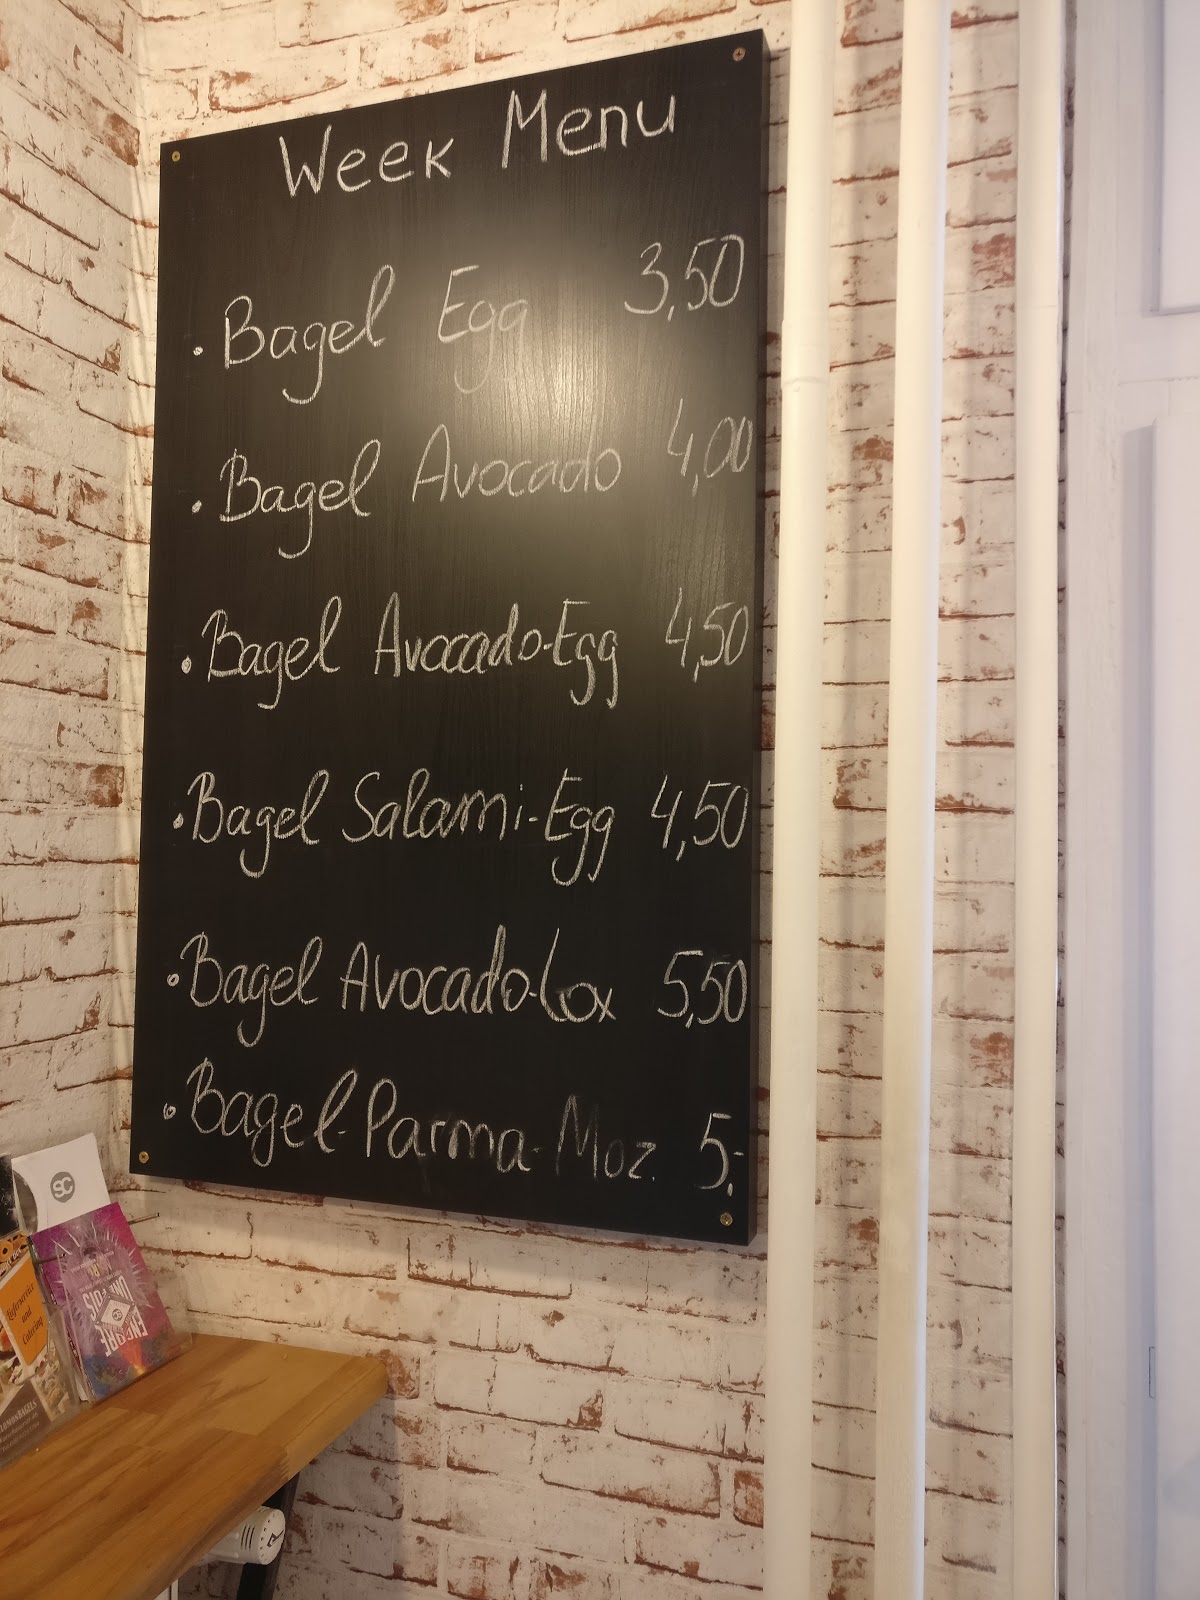 Week Menu
• Bagel Egg 3,50
• Bagel Avocado 4,00
• Bagel Avocado-Egg 4,50
• Bagel Salami-Egg 4,50
• Bagel Avocado-Lox 5,50
• Bagel-Parma-Moz. 5,-
SC
Lieferservice
und
Catering
ENCORE